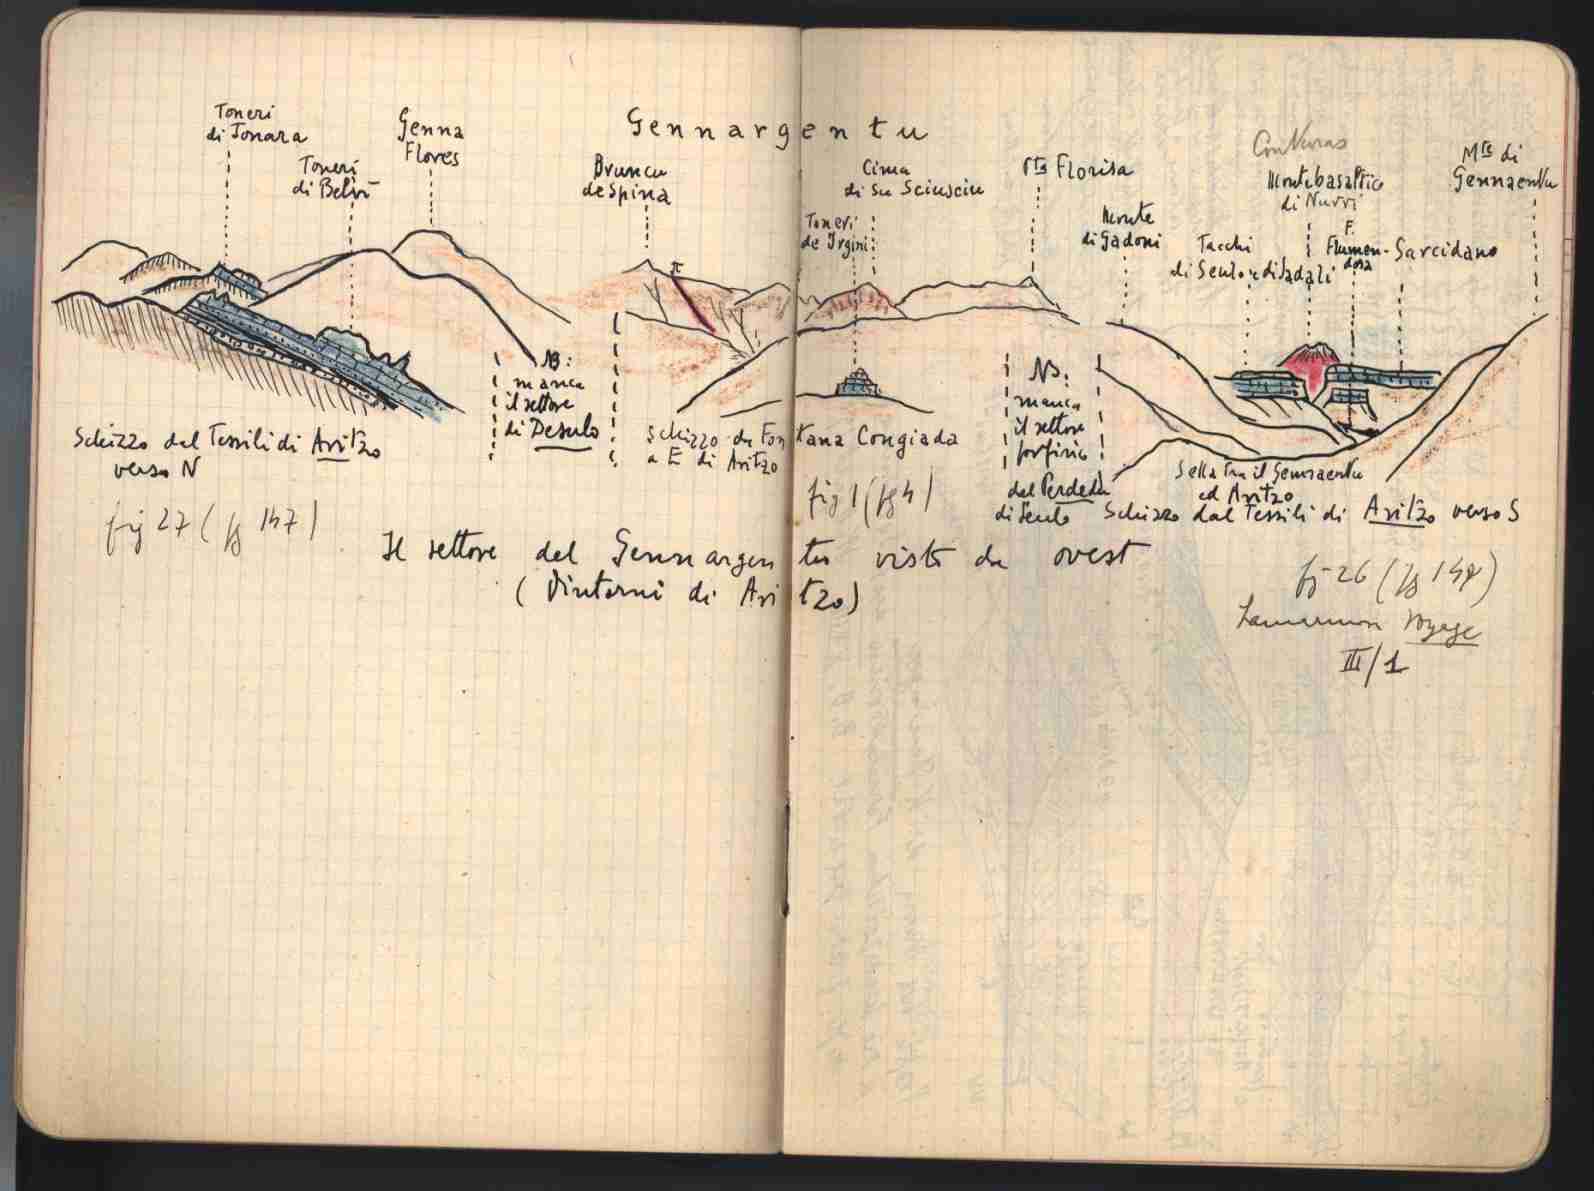 Toneri
di Tonara
Toneri
di Belvì
Genna
Flores
Gennargentu
Bruncu
de Spina
π
Cima
di Su Sciusciu
Toneri
de Irgini
Pta Florisa
Monte
di Gadoni
Tacchi
di Seulo e di Sadali
Montebasaltico
di Nurri
F.
Flumen-
dosa
Sarcidano
Mte di
Gennaentu
NB:
manca
il settore
di Desulo
Schizzo dal Tessili di Aritzo
verso N
fig 27 (pg 147)
Schizzo da Fontana Congiada
a E di Aritzo
fig 1 (pg 4)
NB:
manca
il settore
porfirico
del Perdedu
di Seulo
Sella tra il Gennaentu
ed Aritzo
Schizzo dal Tessili di Aritzo verso S
Il settore del Gennargentu visto da ovest
(Dintorni di Aritzo)
fig 26 (pg
Lamarmora Voyage
III/1